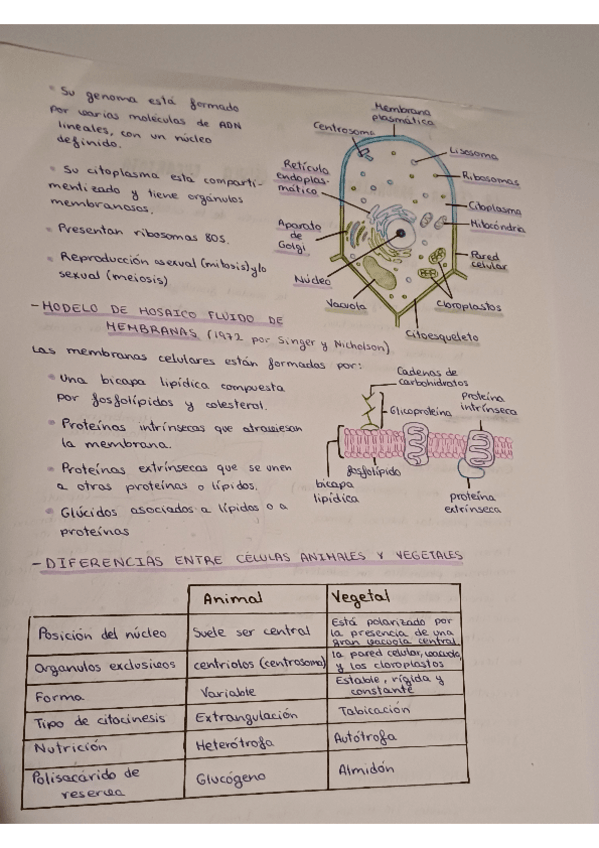 • Su genoma está formado
por varias moléculas de ADN
lineales, con un núcleo
definido.
• Su citoplasma está comparti-
mentizado y tiene orgánulos
membranosos.
• Presentan ribosomas 80S.
• Reproducción asexual (mitosis) y/o
sexual (meiosis)
Membrana
plasmática
Centrosoma
Lisosoma
Retículo
endoplas-
mático
Ribosomas
Citoplasma
Mitocondria
Aparato
de
Golgi
Pared
celular
Núcleo
Vacuola
Cloroplastos
Citoesqueleto
- MODELO DE MOSAICO FLUIDO DE
MEMBRANAS (1972 por Singer y Nicholson)
Las membranas celulares están formadas por:
• Una bicapa lipídica compuesta
por fosfolípidos y colesterol.
• Proteínas intrínsecas que atraviesan
la membrana.
• Proteínas extrínsecas que se unen
a otras proteínas o lípidos.
• Glúcidos asociados a lípidos o a
proteínas
Cadenas de
carbohidratos
Glicoproteína
Proteína
intrínseca
fosfolípido
bicapa
lipídica
proteína
extrínseca
- DIFERENCIAS ENTRE CÉLULAS ANIMALES Y VEGETALES
Animal Vegetal
Posición del núcleo Suele ser central Está polarizado por
la presencia de una
gran vacuola central
Organulos exclusivos centriolos (centrosoma) la pared celular, vacuola,
y los cloroplastos
Forma Variable Estable, rígida y
constante
Tipo de citocinesis Extrangulación Tabicación
Nutrición Heterótrofa Autótrofa
Polisacárido de
reserva Glucógeno Almidón